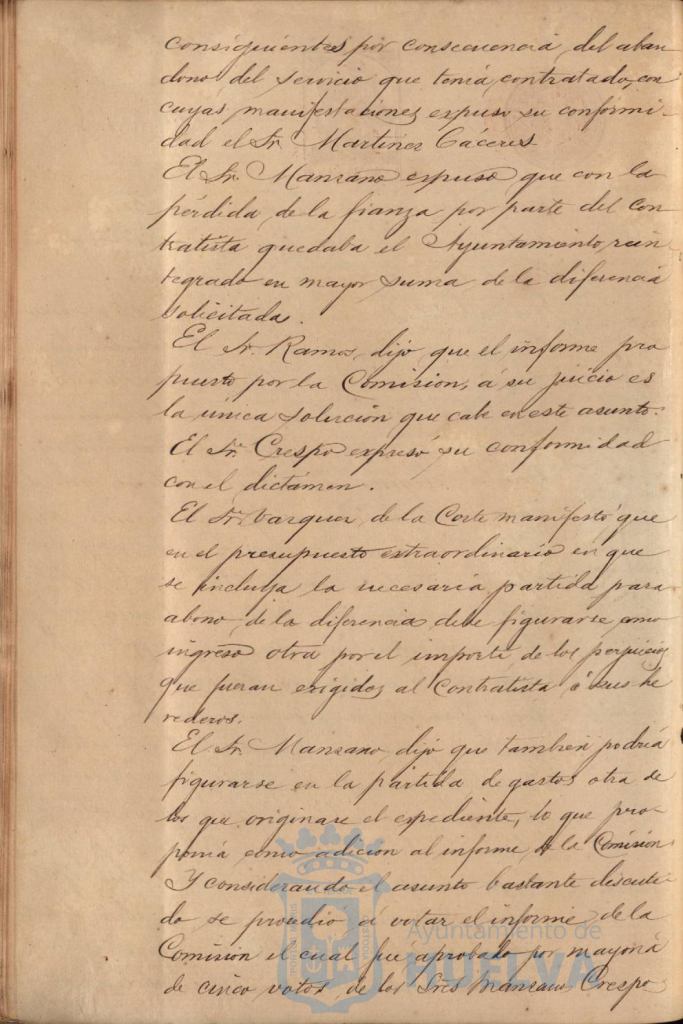 consiguientes por consecuencia del aban
dono del servicio que tenia contratado, con
cuyas manifestaciones expuso su conformi-
dad el Sr. Martinez Cáceres
El Sr. Manzano expuso que con la
pérdida de la fianza por parte del con
tratista quedaba el Ayuntamiento rein
tegrado en mayor suma de la diferencia
solicitada.
El Sr. Ramos, dijo, que el informe pro
puesto por la Comision, á su juicio es
la única solución que cabe en este asunto.
El Sr. Crespo expresó su conformidad
con el dictámen.
El Sr. Vazquez de la Corte manifestó que
en el presupuesto extraordinario en que
se incluya la necesaria partida para
abono de la diferencia, debe figurarse como
ingreso otra por el importe de los perjuicios
que fueran exigidos al Contratista ó sus he
rederos.
El Sr. Manzano, dijo que tambien podria
figurarse en la partida de gastos otra de
los que originase el expediente, lo que pro-
ponia como adicion al informe de la Comision
Y considerando el asunto bastante discuti-
do se procedió á votar el informe de la
Comision el cual fué aprobado por mayoria
de cinco votos, de los Sres Manzano, Crespo
Ayuntamiento de
HUELVA